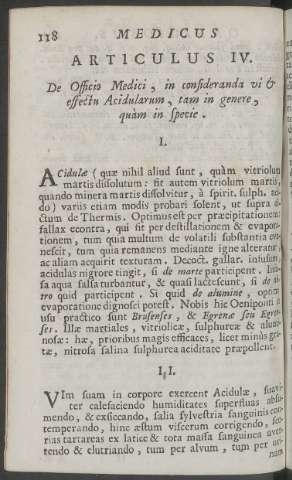 118 MEDICUS
ARTICULUS IV.
De Officio Medici, in consideranda vi &
effectu Acidularum, tam in genere,
quàm in specie.
I.
ACidulæ (quæ nihil aliud sunt, quàm vitriolum
martis dissolutum: fit autem vitriolum martis,
quando minera martis dissolvitur, à spirit. sulph. aci-
do) variis etiam modis probari solent, ut supra di-
ctum de Thermis. Optimus est per præcipitationem:
fallax econtra, qui fit per destillationem & evapora-
tionem, tum quia multum de volatili substantia eva-
nescit, tum quia remanens mediante igne alteratur,
ac aliam acquirit texturam. Decoct. gallar. infusum
acidulas nigrore tingit, si de marte participent. Infu-
sa aqua salsa turbantur, & quasi lactescunt, si de ni-
tro quid participent. Si quid de alumine, optimè
evaporatione dignosci potest. Nobis hîc Oeniponti in
usu practico sunt Brusenses, & Egrenæ seu Egren-
ses. Illæ martiales, vitriolicæ, sulphureæ & alumi-
nosæ: hæ, prioribus magis efficaces, licet minùs gra-
tæ, nitrosa salina sulphurea aciditate præpollent.
II.
VIm suam in corpore exercent Acidulæ, suavi-
ter calefaciendo humiditates superfluas absu-
mendo, & exsiccando, salia sylvestria sanguinis con-
temperando, hinc æstum viscerum corrigendo, sco-
rias tartareas ex latice & tota massa sanguinea aver-
tendo & elutriando, tum per alvum, tum per uri-
nam